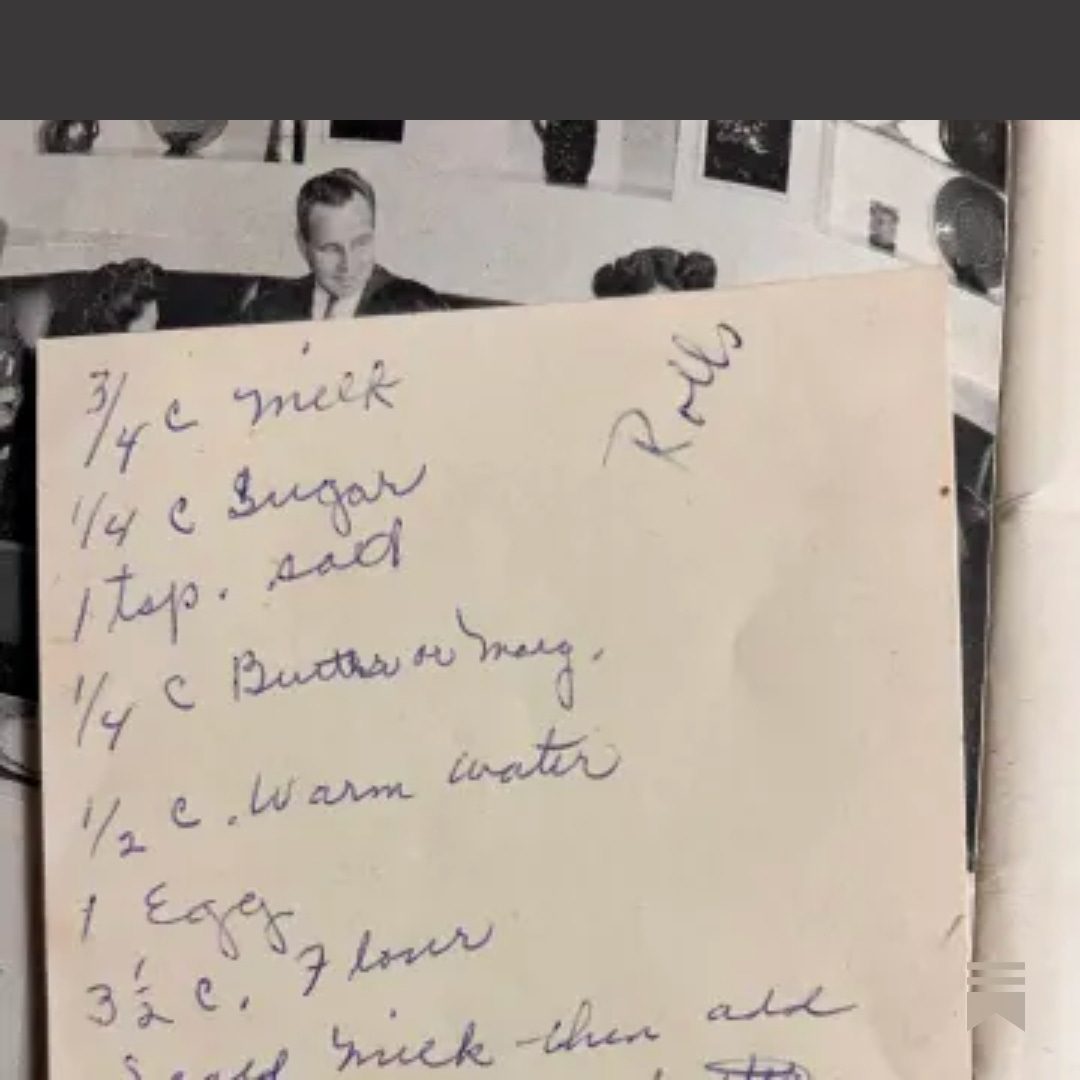 Rolls
3/4 c milk
1/4 c Sugar
1 tsp. salt
1/4 c Butter or marg.
1/2 c. Warm water
1 Egg
3 1/2 c. Flour
Scald milk - then add